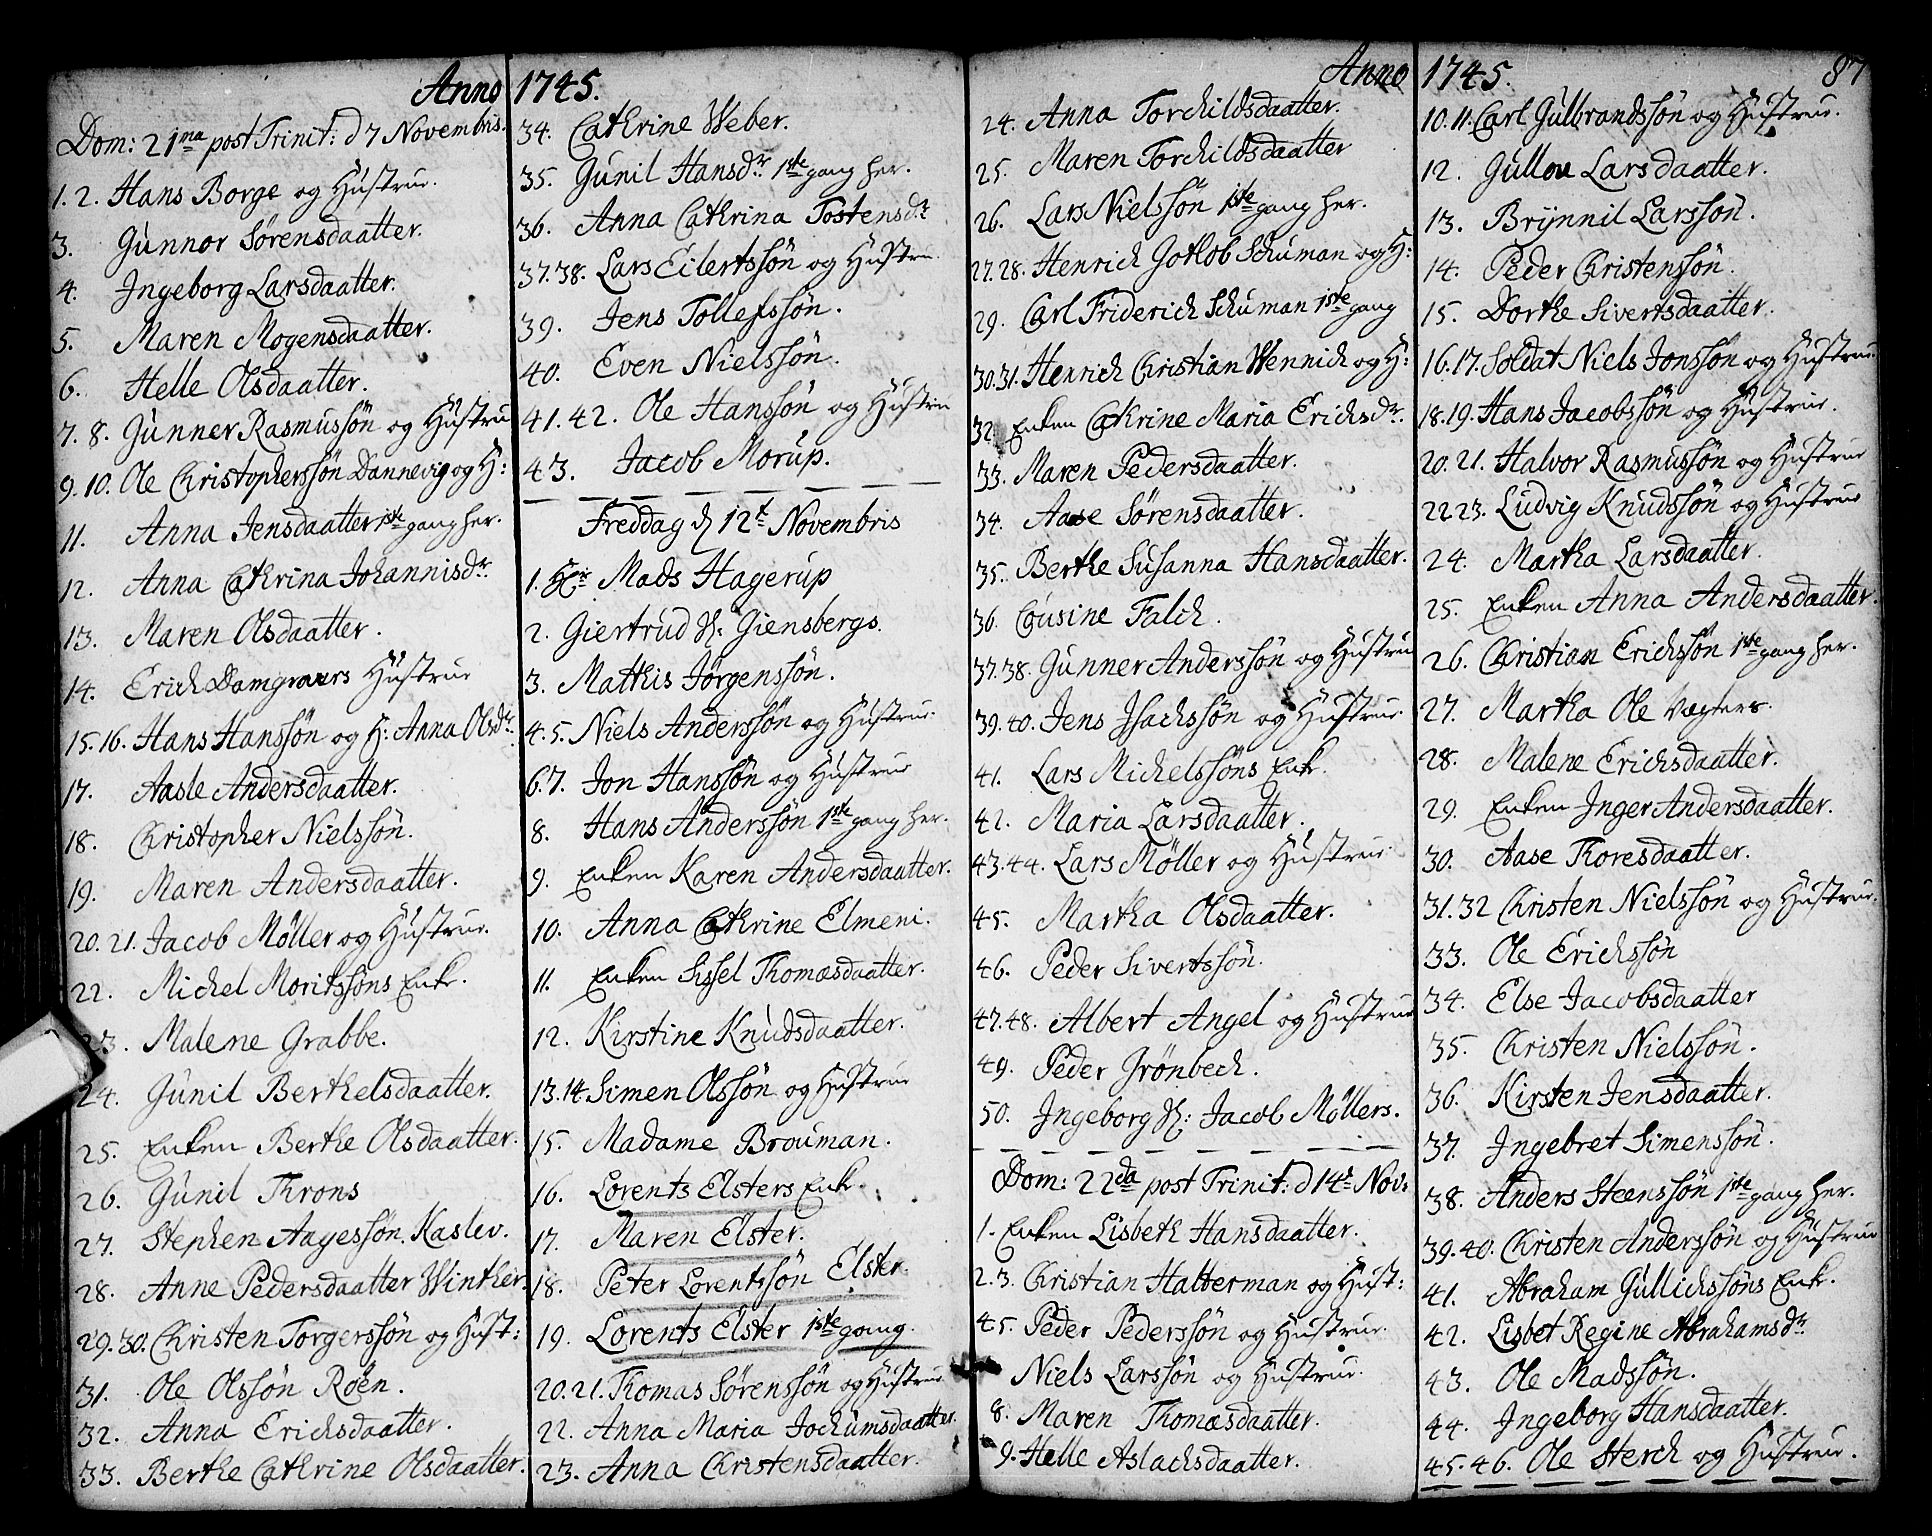 Anno 1745.
Dom: 21ma post Trinit: d 7 Novembris.
1. 2. Hans Borge og Hustrue.
3. Gunnor Sørensdaatter.
4. Ingeborg Larsdaatter.
5. Maren Mogensdaatter.
6. Helle Olsdaatter.
7. 8. Gunner Rasmussøn og Hustru
9. 10. Ole Christopherssøn Dannevig og H:
11. Anna Jensdaatter 1ste gang her.
12. Anna Cathrina Johannisdr.
13. Maren Olsdaatter.
14. Erich Damgraars Hustrue
15. 16. Hans Hanssøn og H: Anna Olsdr.
17. Aasle Andersdaatter.
18. Christopher Nielssøn.
19. Maren Andersdaatter.
20. 21. Jacob Møller og Hustrue.
22. Michel Moritssøns Enke.
23. Malene Grabbe.
24. Gunil Berthelsdaatter.
25. Enken Berthe Olsdaatter.
26. Gunil Throns
27. Stephen Aagessøn Kaslev.
28. Anne Pedersdaatter Winther.
29. 30. Christen Torgerssøn og Hust:
31. Ole Olssøn Røen.
32. Anna Erichsdaatter.
33. Berthe Cathrine Olsdaatter.
34. Cathrine Weber.
35. Gunil Hansdr. 1ste gang her.
36. Anna Cathrina Tostensdr.
37. 38. Lars Eilertssøn og Hustru.
39. Jens Tollefssøn.
40. Even Nielssøn.
41. 42. Ole Hanssøn og Hustru
43. Jacob Morup.
Freddag d 12t Novembris
1. Hr Mads Hagerup
2. Giertrud H: Giensbergs.
3. Mathis Jørgenssøn.
4. 5. Niels Anderssøn og Hustrue.
6. 7. Jon Hanssøn og Hustrue
8. Hans Anderssøn 1ste gang her.
9. Enken Karen Andersdaatter.
10. Anna Cathrine Elmeni.
11. Enken Sissel Thomæsdaatter.
12. Kirstine Knudsdaatter.
13. 14. Simen Olssøn og Hustrue
15. Madame Brouman.
16. Lorents Elsters Enke.
17. Maren Elster.
18. Peter Lorentssøn Elster.
19. Lorents Elster 1ste gang.
20. 21. Thomas Sørenssøn og Hustrue
22. Anna Maria Jochumsdaatter.
23. Anna Christensdaatter.
Anno 1745. 87
24. Anna Torchildsdaatter.
25. Maren Torchildsdaatter
26. Lars Nielssøn 1ste gang her.
27. 28. Henrich Gotlob Schuman og H:
29. Carl Friderich Schuman 1ste gang
30. 31. Henrich Christian Wennich og H:
32. Enken Cathrine Maria Erichsdr.
33. Maren Pedersdaatter.
34. Aase Sørensdaatter.
35. Berthe Susanna Hansdaatter.
36. Cousine Falch.
37. 38. Gunner Anderssøn og Hustru
39. 40. Jens Isachssøn og Hustrue.
41. Lars Michelssøns Enke.
42. Maria Larsdaatter.
43. 44. Lars Møller og Hustrue.
45. Martha Olsdaatter.
46. Peder Sivertssøn.
47. 48. Albert Angel og Hustrue
49. Peder Grønbech.
50. Ingeborg H: Jacob Møllers.
Dom: 22da post Trinit: d 14t Nov:
1. Enken Lisbeth Hansdaatter.
2. 3. Christian Halterman og Hust:
4 5. Peder Pederssøn og Hustrue.
Niels Larssøn og Hustrue.
8. Maren Thomæsdaatter.
9. Helle Aslachsdaatter.
10. 11. Carl Gulbrandssøn og Hustrue.
12. Gullou Larsdaatter.
13. Brynnil Larssøn.
14. Peder Christenssøn.
15. Dorthe Sivertsdaatter.
16. 17. Soldat Niels Jonssøn og Hustrue
18. 19. Hans Jacobssøn og Hustrue.
20. 21. Halvor Rasmussøn og Hustrue
22 23. Ludvig Knudssøn og Hustrue
24. Martha Larsdaatter.
25. Enken Anna Andersdaatter.
26. Christian Erichssøn 1ste gang her.
27. Martha Ole Vægters
28. Malene Erichsdaatter.
29. Enken Inger Andersdaatter.
30. Aase Thoresdaatter.
31. 32 Christen Nielssøn og Hustrue.
33. Ole Erichssøn
34. Else Jacobsdaatter
35. Christen Nielssøn.
36. Kirsten Jensdaatter.
37. Ingebret Simenssøn.
38. Anders Steenssøn 1ste gang her.
39. 40. Christen Anderssøn og Hustrue
41. Abraham Gullichssøns Enke.
42. Lisbet Regine Abrahamsdr
43. Ole Madssøn.
44. Ingeborg Hansdaatter.
45. 46. Ole Sterch og Hustrue.